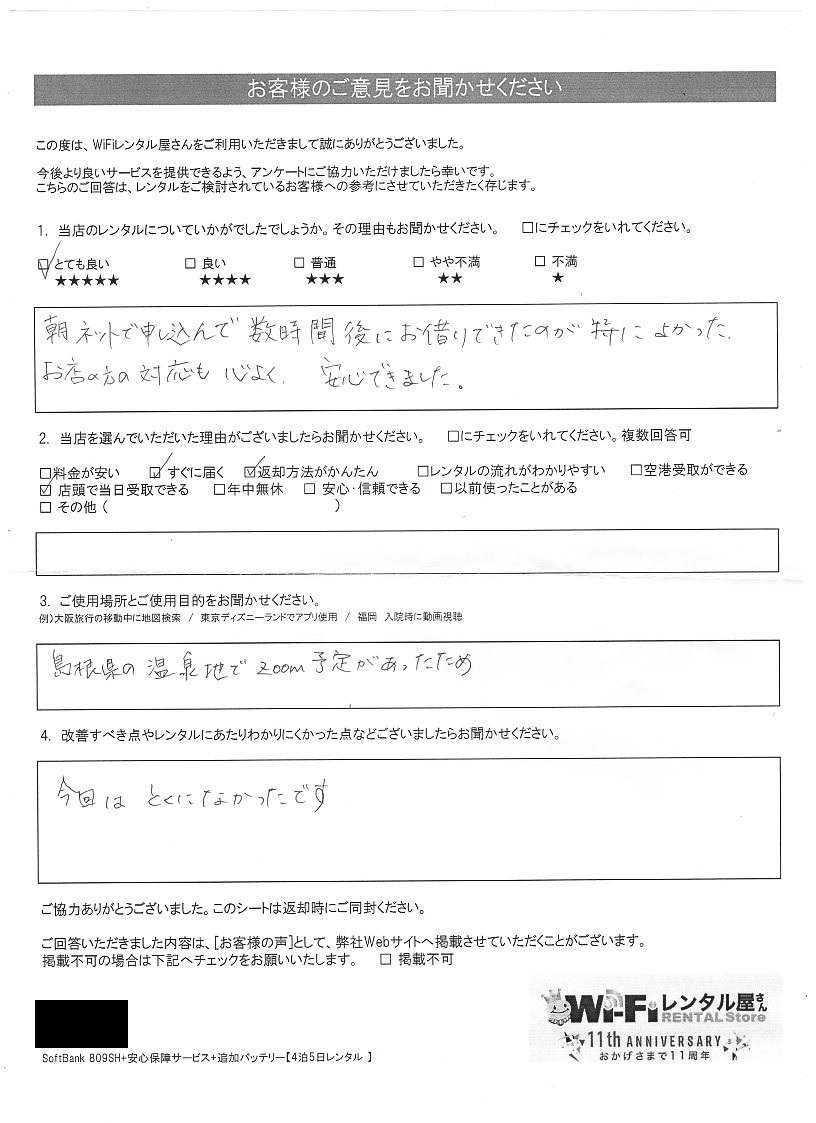 お客様のご意見をお聞かせください
この度は、WiFiレンタル屋さんをご利用いただきまして誠にありがとうございました。
今後より良いサービスを提供できるよう、アンケートにご協力いただけましたら幸いです。
こちらのご回答は、レンタルをご検討されているお客様への参考にさせていただきたく存じます。
1. 当店のレンタルについていかがでしたでしょうか。その理由もお聞かせください。 □にチェックをいれてください。
☑ とても良い □ 良い □ 普通 □ やや不満 □ 不満
★★★★★ ★★★★ ★★★ ★★ ★
朝 ネットで申し込んで 数時間後にお借りできたのが 特に よかった.
お店の方の 対応も 心よく. 安心できました。
2. 当店を選んでいただいた理由がございましたらお聞かせください。 □にチェックをいれてください。複数回答可
□料金が安い ☑ すぐに届く ☑返却方法がかんたん □レンタルの流れがわかりやすい □空港受取ができる
☑ 店頭で当日受取できる □年中無休 □ 安心・信頼できる □以前使ったことがある
□ その他 ( )
3. ご使用場所とご使用目的をお聞かせください。
例)大阪旅行の移動中に地図検索 / 東京ディズニーランドでアプリ使用 / 福岡 入院時に動画視聴
島根県の 温泉地で zoom 予定があったため
4. 改善すべき点やレンタルにあたりわかりにくかった点などございましたらお聞かせください。
今回は とくになかったです
ご協力ありがとうございました。このシートは返却時にご同封ください。
ご回答いただきました内容は、[お客様の声]として、弊社Webサイトへ掲載させていただくことがございます。
掲載不可の場合は下記へチェックをお願いいたします。 □ 掲載不可
Wi-Fiレンタル屋さん
RENTAL Store
11th ANNIVERSARY
おかげさまで11周年
SoftBank 809SH+安心保障サービス+追加バッテリー【4泊5日レンタル 】